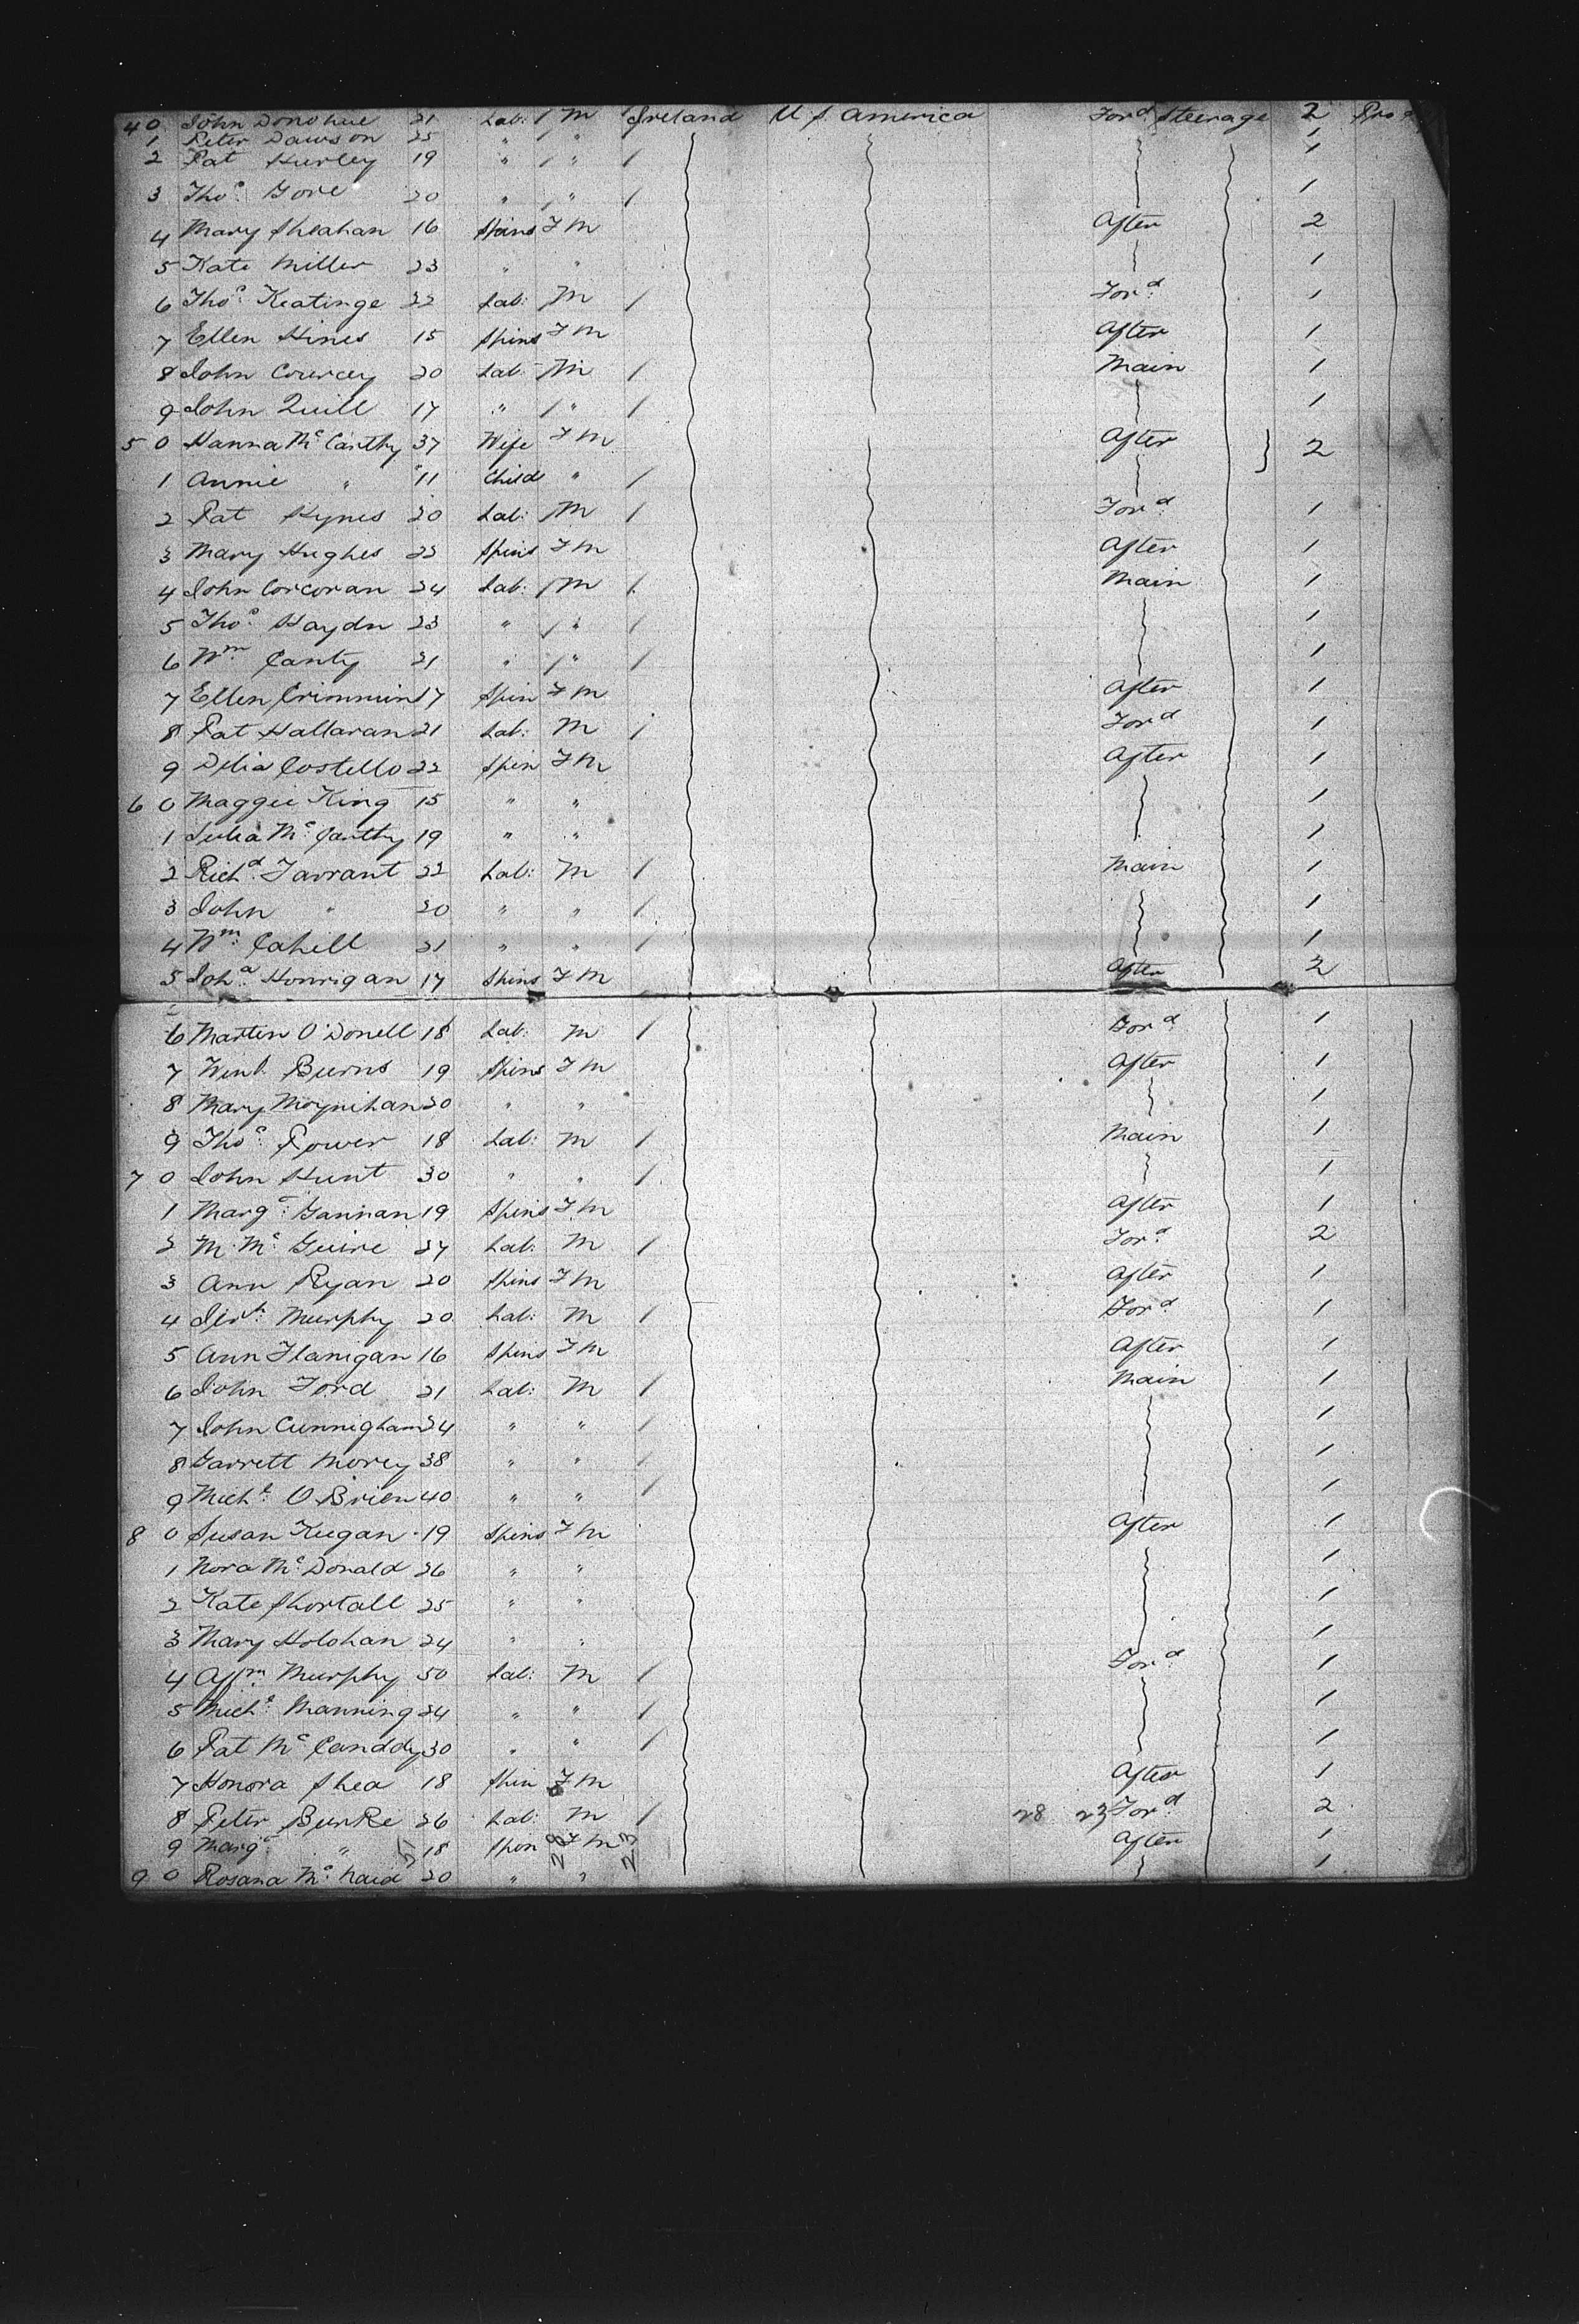 40 John Donohue 21 Lab: / M Ireland U.S. America Ford Steerage 2
1 Peter Dawson 25 " / " 1
2 Pat Hurley 19 " / " / 1
3 Thos. Gore 20 " / " / 1
4 Mary Sheahan 16 Spins F M After 2
5 Kate Miller 23 " " 1
6 Thos. Keatinge 22 Lab: M / Ford 1
7 Ellen Hines 15 Spins F M After 1
8 John Courcey 20 Lab: M / Main 1
9 John Quill 17 " / " / 1
50 Hanna McCarthy 37 Wife F M After } 2
1 Annie " 11 Child " /
2 Pat Hynes 20 Lab: M / Ford 1
3 Mary Hughes 23 Spins F M After 1
4 John Corcoran 24 Lab: / M / Main 1
5 Thos. Haydn 23 " / " / 1
6 Wm. Canty 21 " / " / 1
7 Ellen Crimmins 17 Spin F M After 1
8 Pat Hallaran 21 Lab: M / Ford 1
9 Delia Costello 22 Spin F M After 1
60 Maggie King 15 " " 1
1 Julia McCarthy 19 " " 1
2 Richd. Tarrant 22 Lab: M / Main 1
3 John " 20 " " / 1
4 Wm. Cahill 21 " " / 1
5 Joha. Honrigan 17 Spins F M After 2
6 Martin O'Donell 18 Lab: M / Ford 1
7 Wind. Burns 19 Spins F M After 1
8 Mary Moynihan 20 " " 1
9 Thos. Power 18 Lab: M / Main 1
70 John Hunt 30 " " / 1
1 Margt. Gannan 19 Spins F M After 1
2 M. McGuire 27 Lab: M / Ford 2
3 Ann Ryan 20 Spins F M After 1
4 Jerh. Murphy 20 Lab: M / Ford 1
5 Ann Flanigan 16 Spins F M After 1
6 John Ford 21 Lab: M / Main 1
7 John Cunnigham 24 " " / 1
8 Garrett Morey 38 " " / 1
9 Michl. O'Brien 40 " " / 1
80 Susan Keegan 19 Spins F M After 1
1 Nora McDonald 26 " " 1
2 Kate Shortall 25 " " 1
3 Mary Holohan 24 " " 1
4 Murphy 50 Lab: M / Ford 1
5 Michl. Manning 24 " " / 1
6 Pat McCanddy 30 " " / 1
7 Honora Shea 18 Spin F M After 1
8 Peter Burke 26 Lab: M / 28 23 Ford 2
9 Margt. " 18 Spin F M After 1
90 Rosana McNaid 20 " " 1